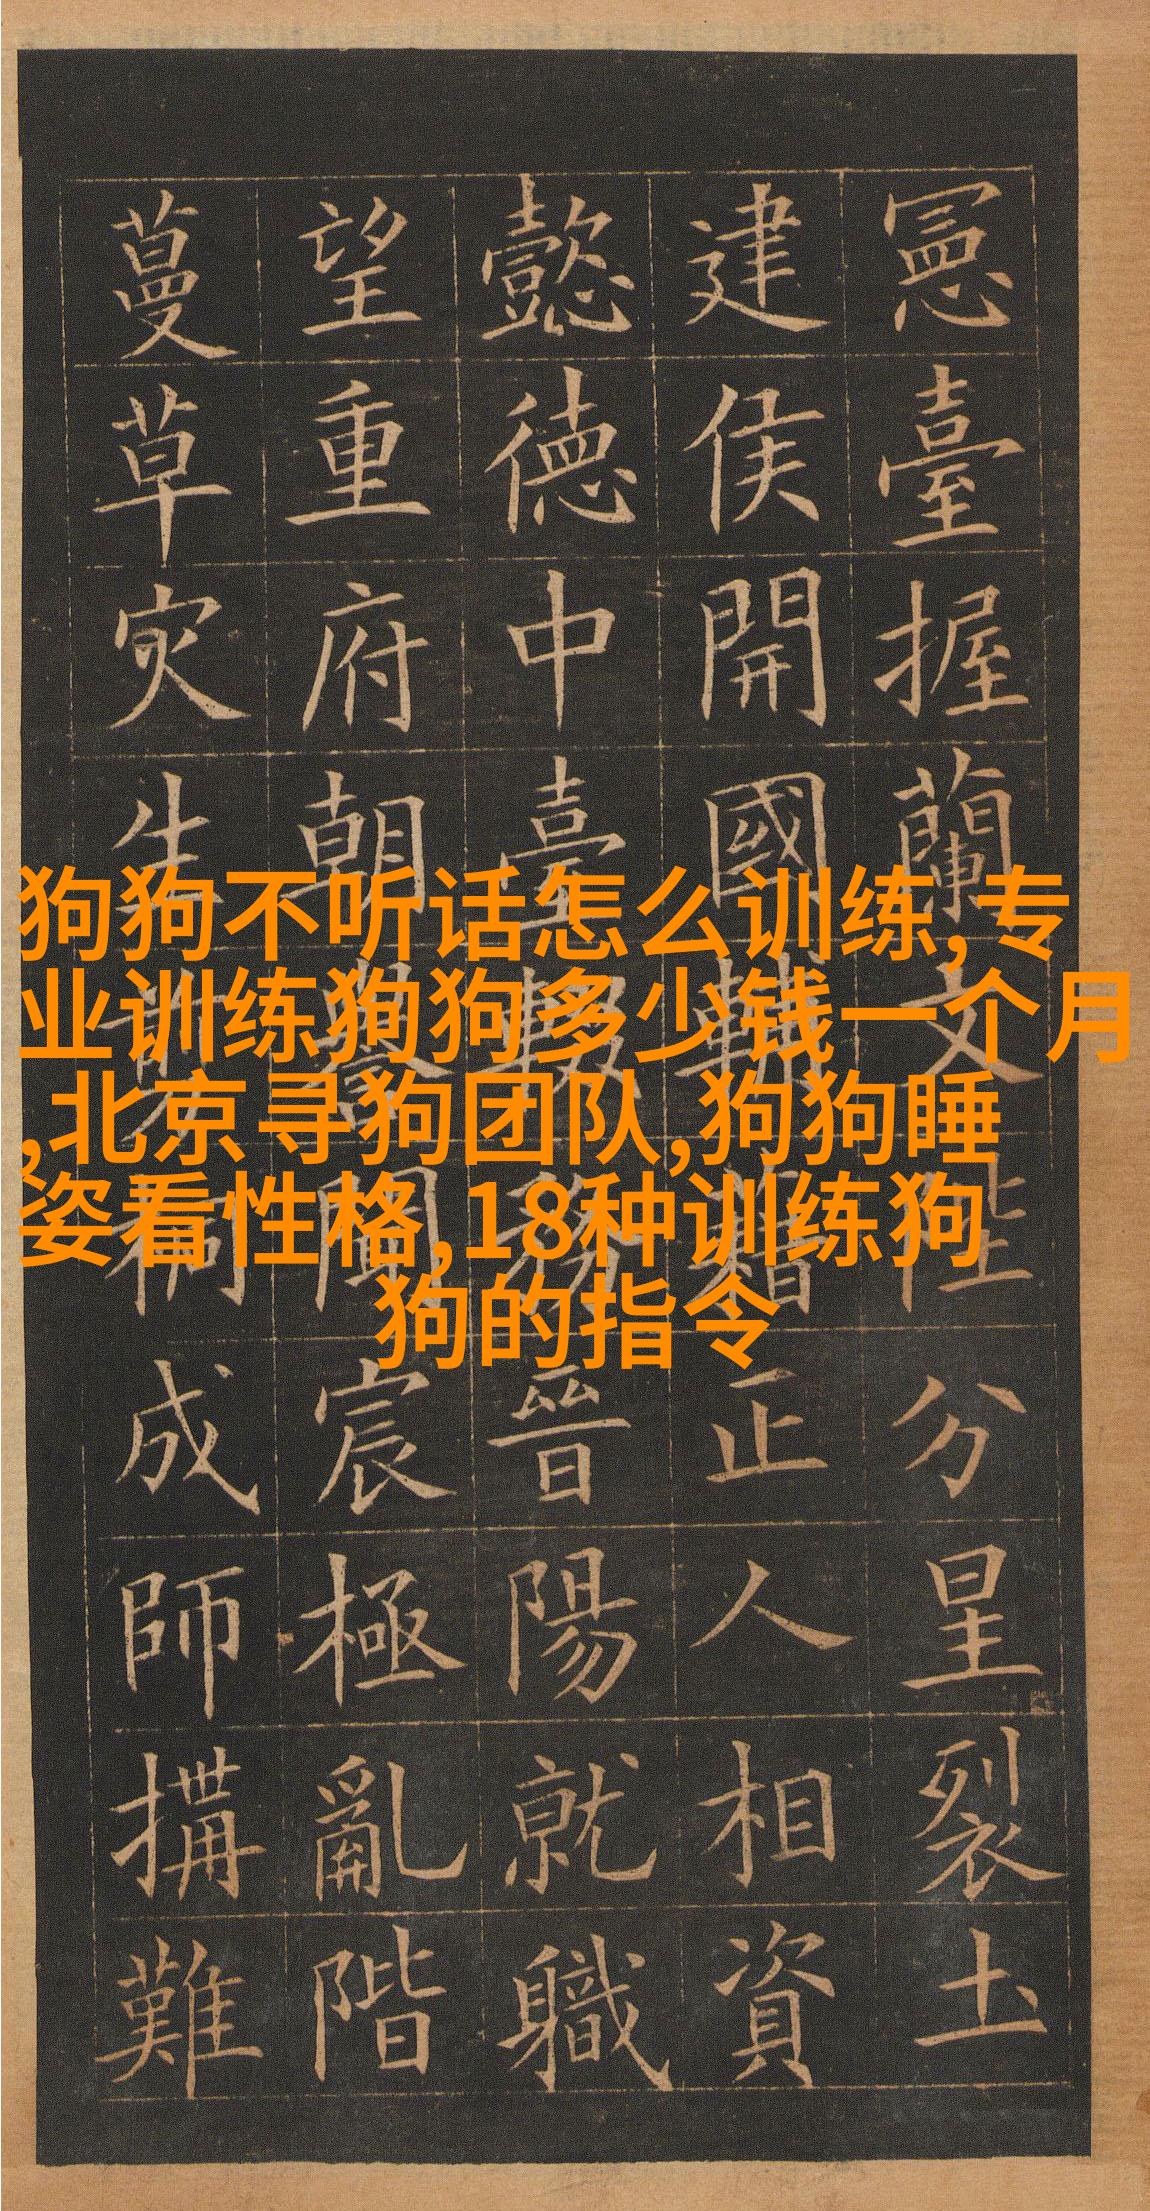 憲臺握蘭文陛分星裂土
建侯開國藉正人相資
懿德中臺輟務晉陽就職
望重府朝譽聞宸極亂階
蔓草災生桐成師搆難
狗狗不听话怎么训练,专
业训练狗狗多少钱一个月
,北京寻狗团队,狗狗睡
姿看性格,18种训练狗
狗的指令